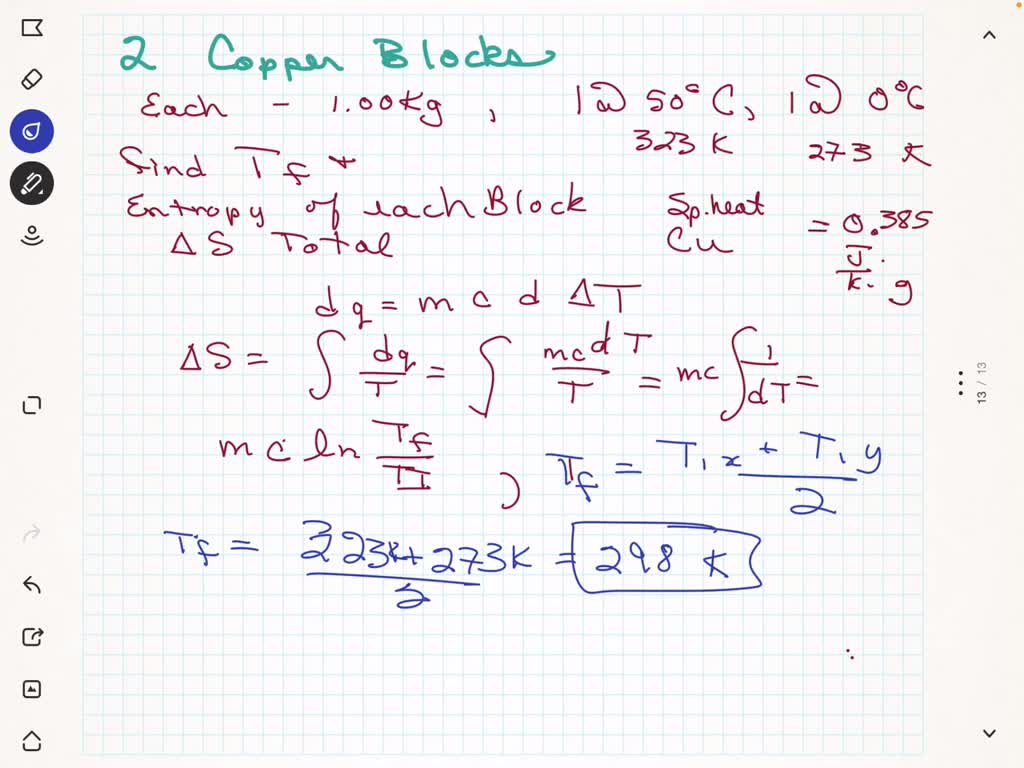 2 Copper Blocks
Each - 1.00Kg, 1@ 50°C, 1@ 0°C
323 K 273 K
find Tf +
Entropy of each Block Sp. heat = 0.385
ΔS Total Cu J/K·g
dq = m c d ΔT
ΔS = ∫ dq/T = ∫ mcdT/T = mc ∫ 1/dT =
m c ln Tf/TI , Tf = T1x + T1y / 2
Tf = 323K + 273K / 2 = 298 K
13 / 13